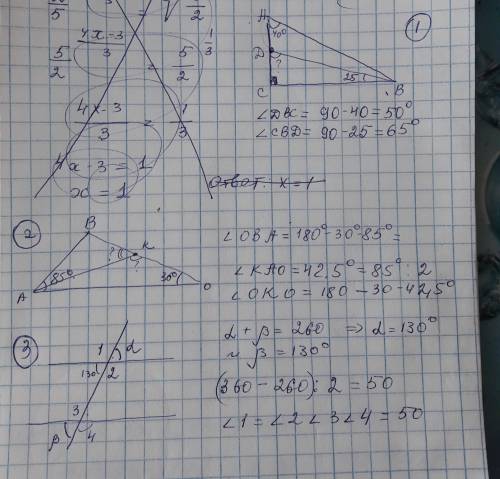 5
1
2
4x-3
3
1
3
5
2
=
5
2
4x-3
3
=
1
3
4x-3 = 1
x = 1
Ответ: x = 1
①
A
40°
D
?
C
25
B
∠DBC = 90-40=50°
∠CBD= 90-25=65°
②
B
K
?
?
A
85°
30°
O
∠OBA=180°-30°-85°=
∠KAO=42,5°=85°:2
∠OKO=180-30-42,5°
③
1
α
130°
2
3
β
4
α+β=260 ⇒ α=130°
β=130°
(360-260):2=50
∠1=∠2∠3∠4=50